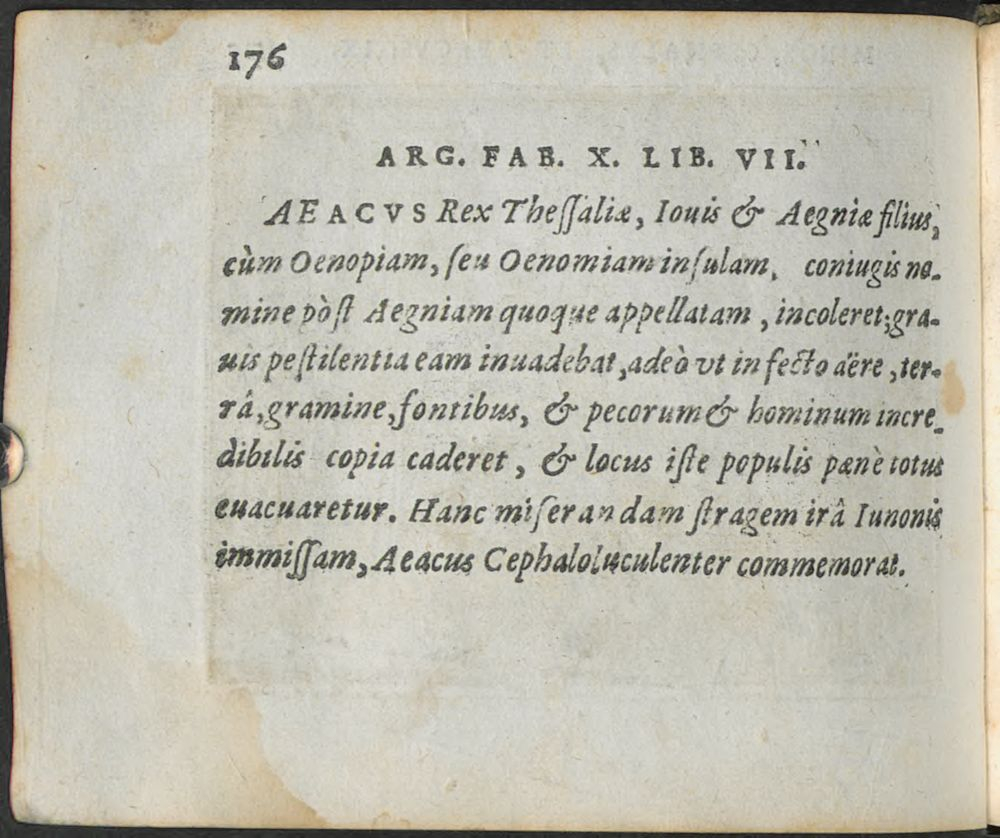 176
ARG. FAB. X. LIB. VII.
AEACVS Rex Theſſaliæ, Iouis & Aegniæ filius,
cùm Oenopiam, ſeu Oenomiam inſulam, coniugis no-
mine pòſt Aegniam quoque appellatam, incoleret; gra-
uis peſtilentia eam inuadebat, adeò vt infecto aëre, ter-
râ, gramine, fontibus, & pecorum & hominum incre-
dibilis copia caderet, & locus iſte populis pænè totus
euacuaretur. Hanc miſerandam ſtragem irâ Iunonis
immiſſam, Aeacus Cephalo luculenter commemorat.